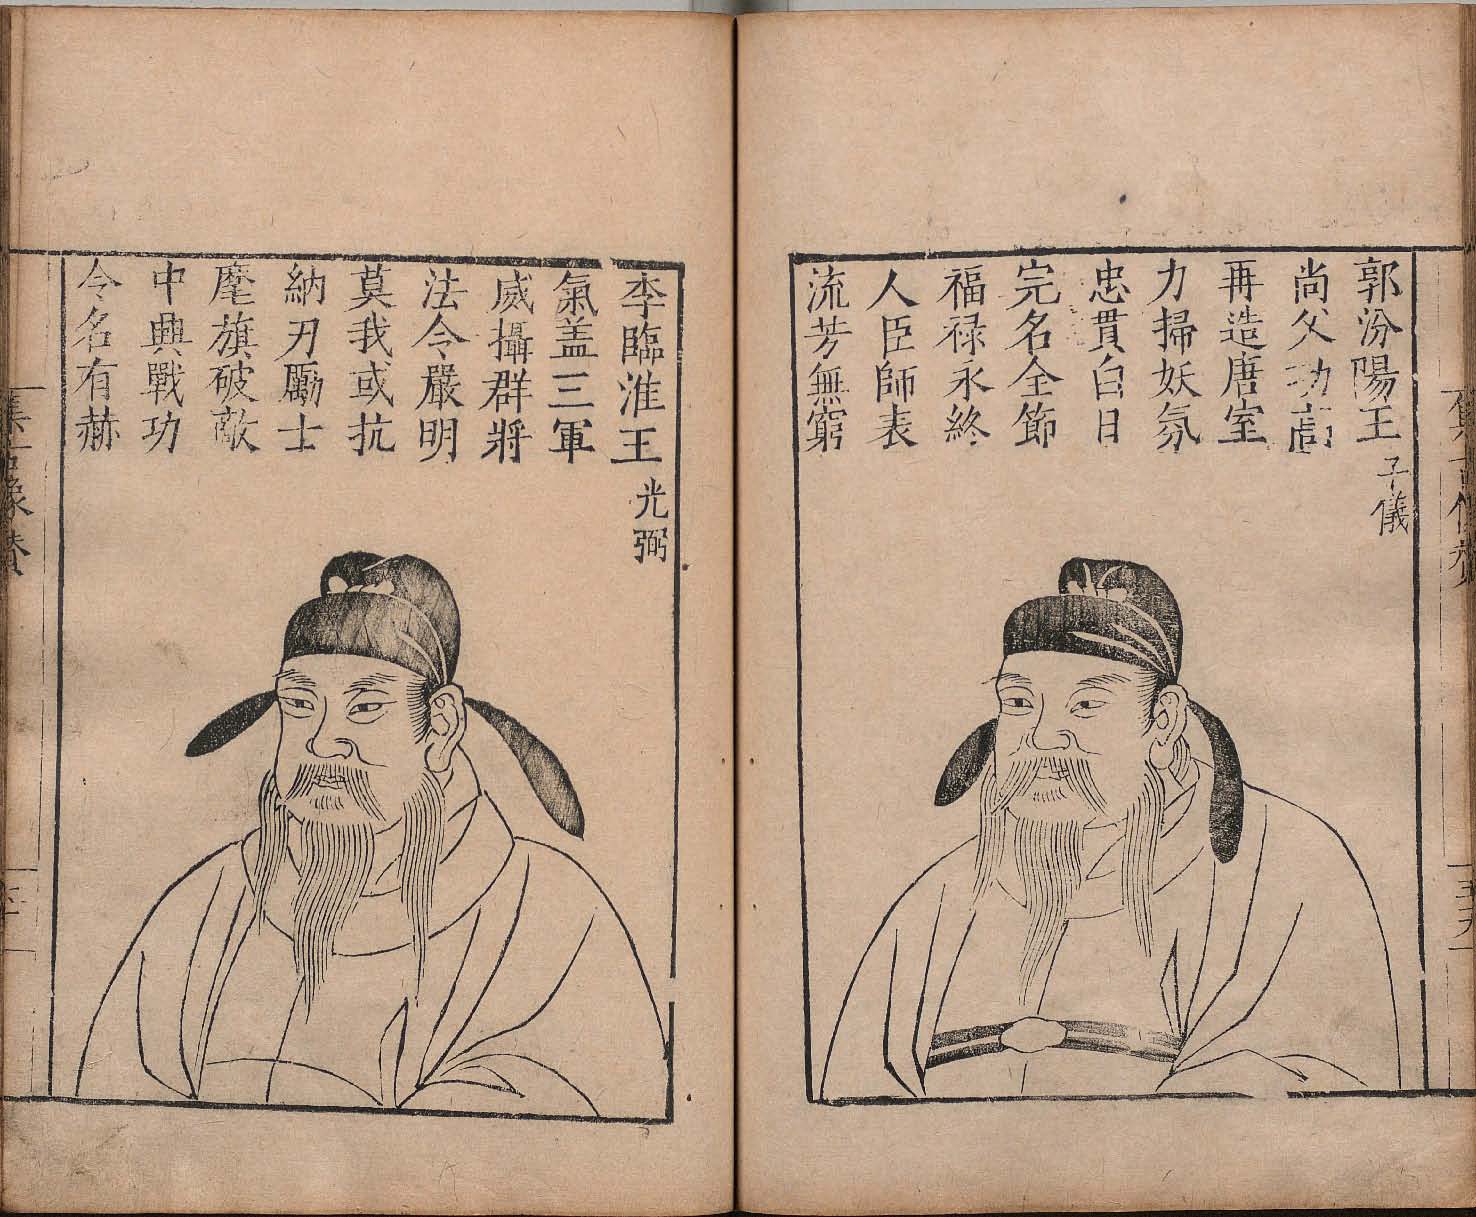 郭汾陽王子儀
尚父功高
再造唐室
力掃妖氛
忠貫白日
完名全節
福禄永終
人臣師表
流芳無窮
李臨淮王光弼
氣盖三軍
威攝群將
法令嚴明
莫我或抗
納刃勵士
麾旗破敵
中興戰功
令名有赫